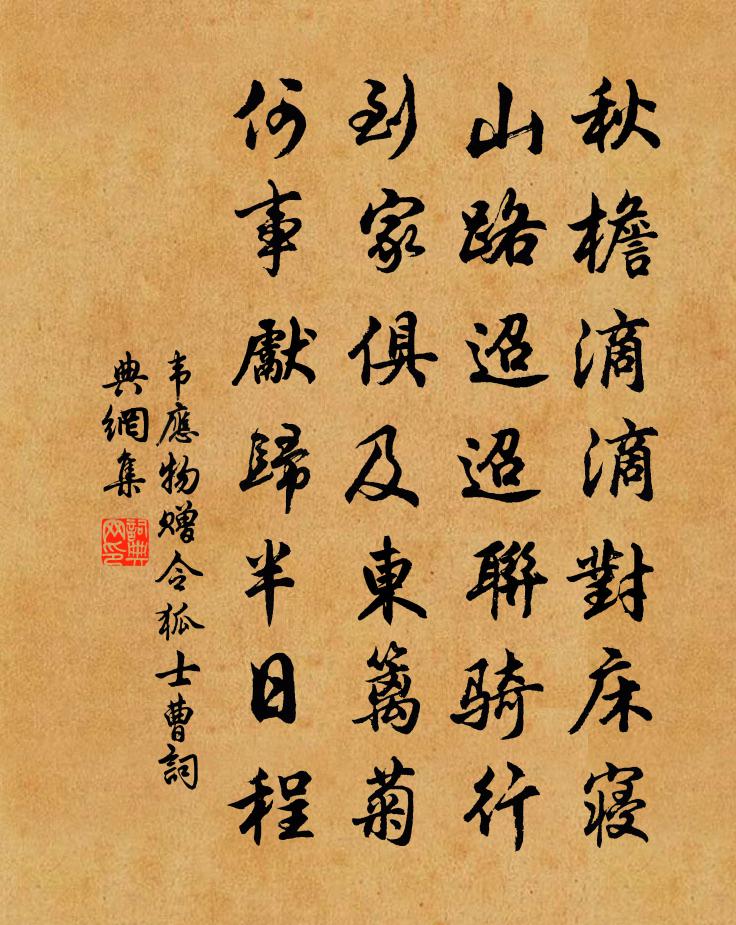 秋檐滴滴對床寢
山路迢迢聯騎行
到家俱及東篱菊
何事獻歸半日程
韦應物赠令狐士曹詞
典網集
詞典
网印